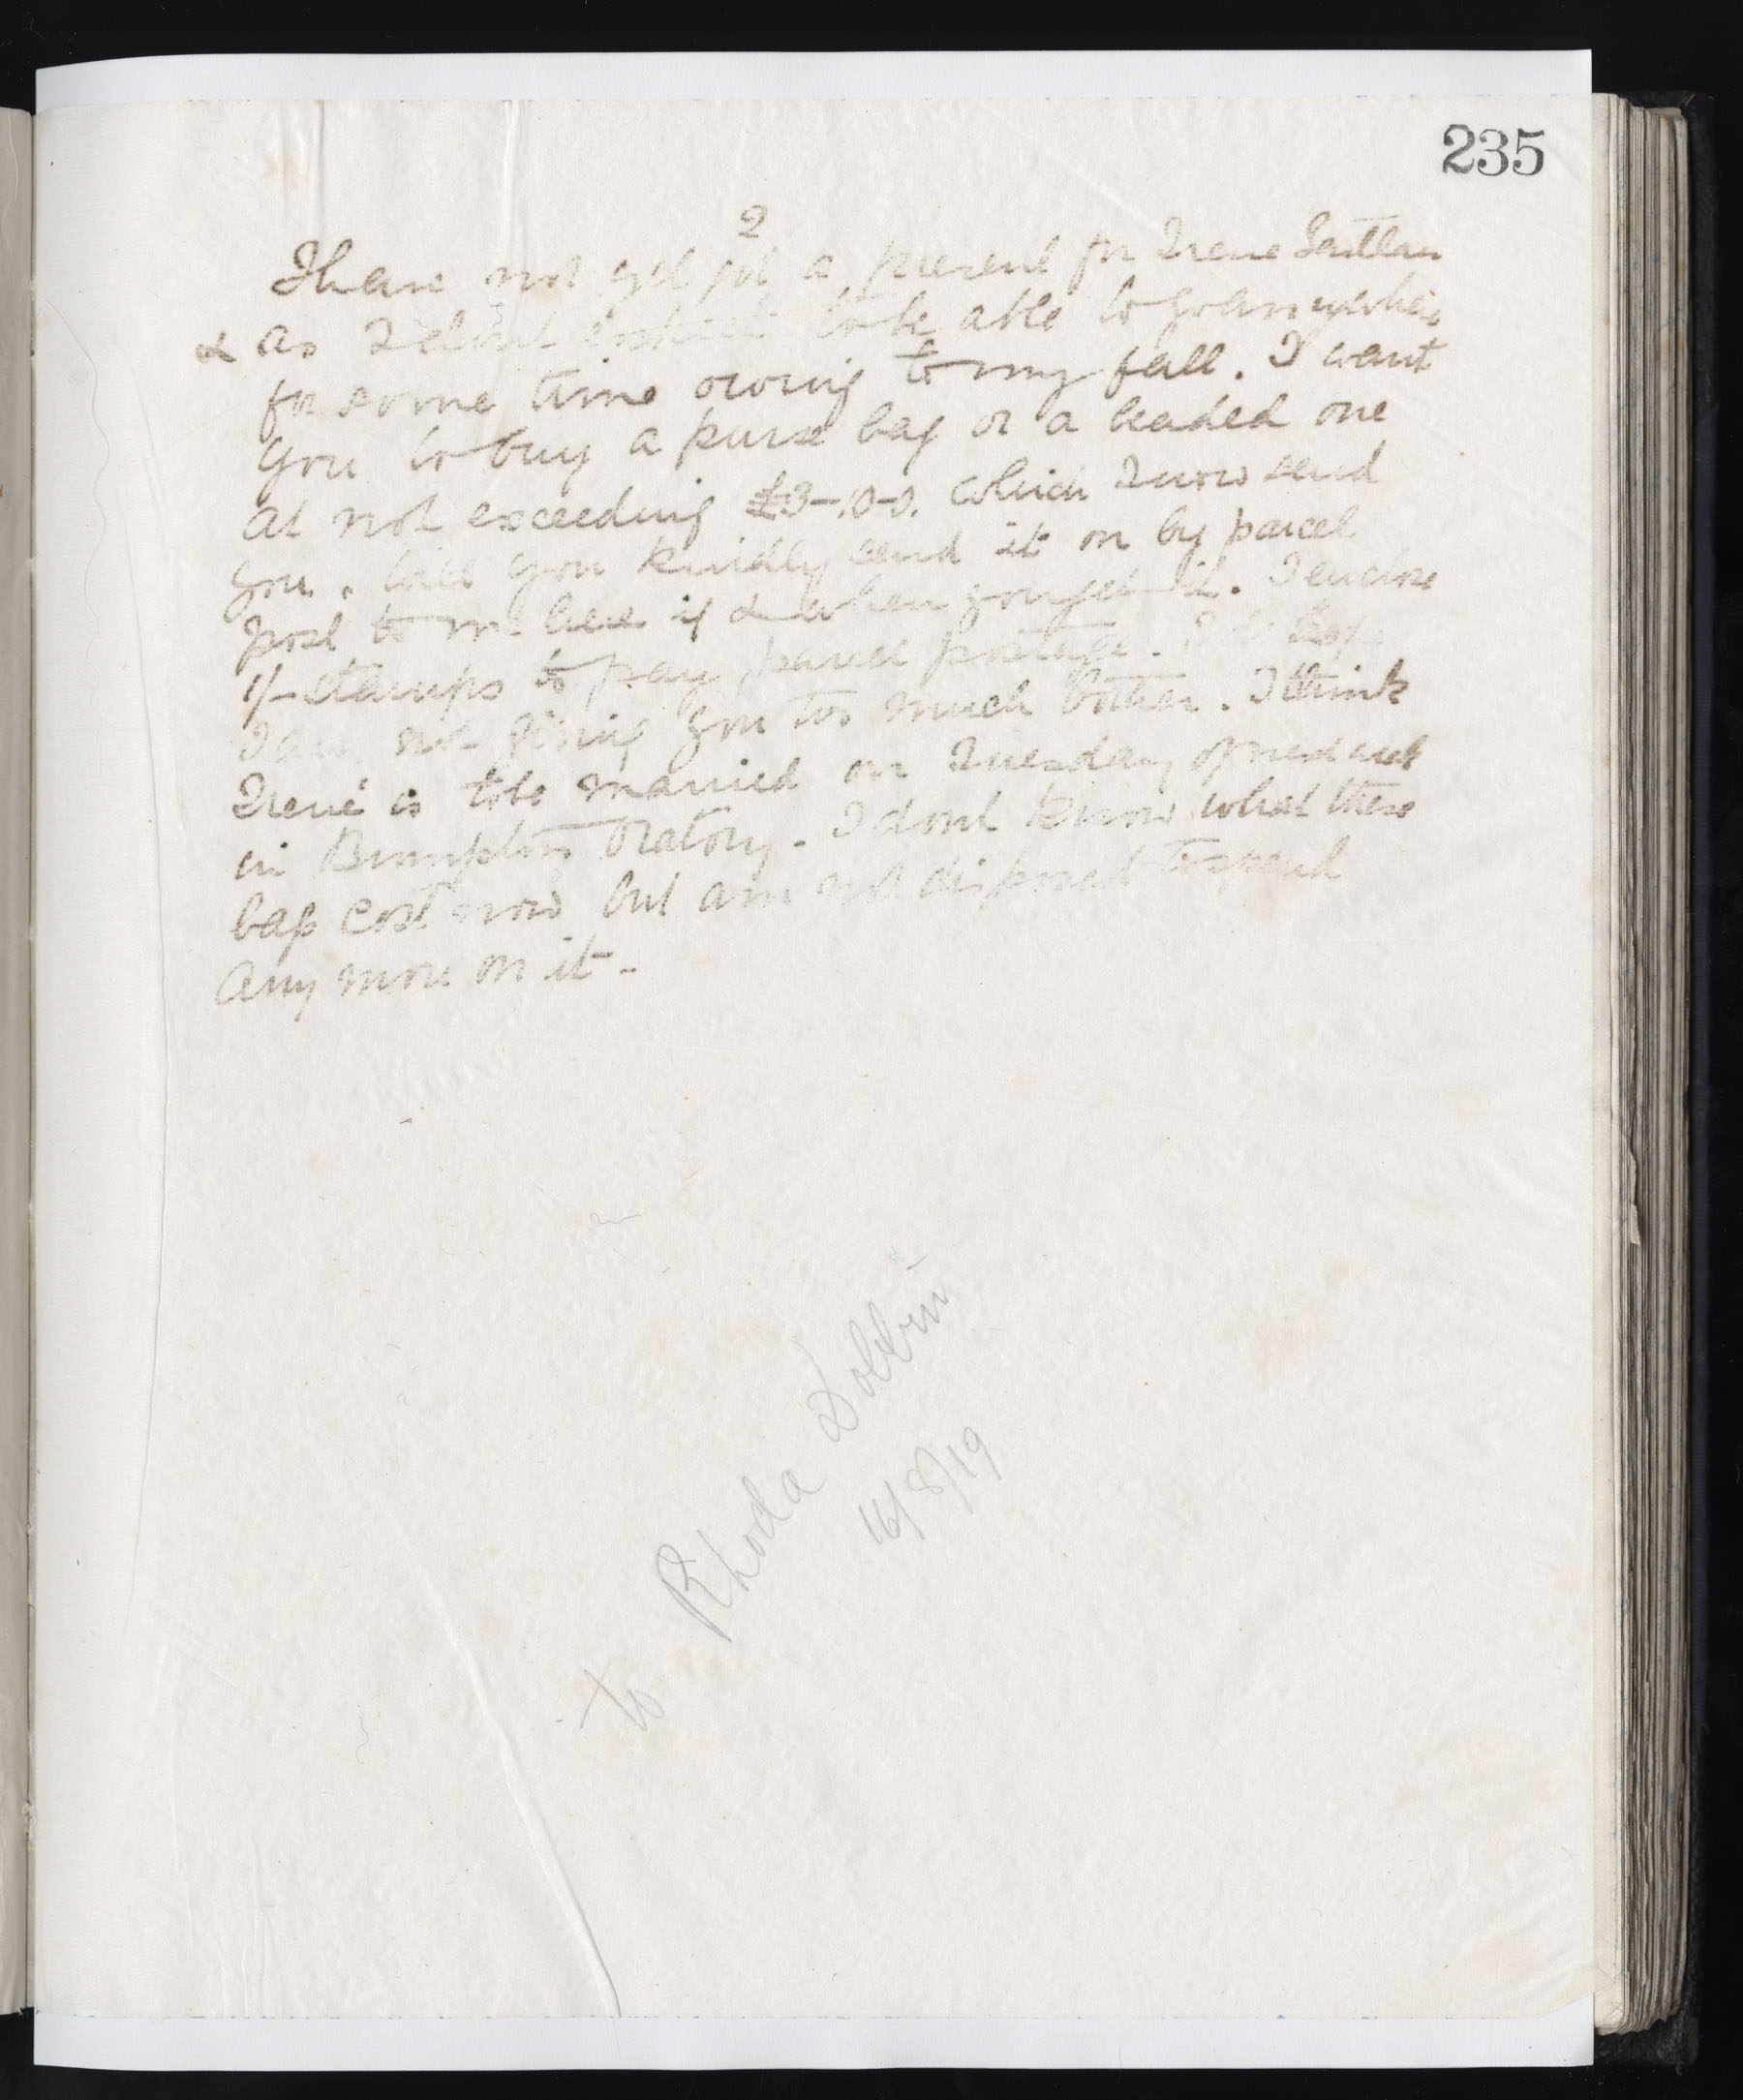 235
2
I have not yet got a present for Irene
& as I don't expect to be able to go anywhere
for some time owing to my fall. I want
you to buy a purse bag or a beaded one
at not exceeding £3-.0-0. which I now send
you. Will you kindly send it on by parcel
post to me here if & when you get it. I enclose
1/- stamps to pay parcel postage. I hope
I am not giving you too much bother. I think
Irene is to be married on Tuesday of next week
in Brompton Oratory - I dont know what these
bags cost now but am not disposed to spend
any more on it -
to Rhoda Dolbin
16/8/19